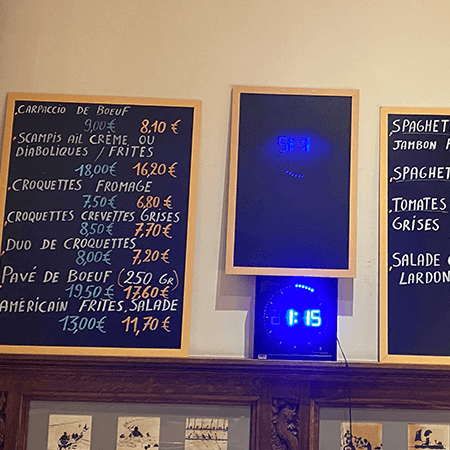 CARPACCIO DE BOEUF
9,00€ 8,10 €
SCAMPIS AIL CRÈME OU
DIABOLIQUES / FRITES
18,00€ 16,20 €
CROQUETTES FROMAGE
7,50€ 6,80 €
CROQUETTES CREVETTES GRISES
8,50€ 7,70 €
DUO DE CROQUETTES
8,00€ 7,20 €
PAVÉ DE BOEUF (250 GR)
19,50€ 17,60 €
AMÉRICAIN FRITES, SALADE
13,00€ 11,70 €
1:15
SPAGHET
JAMBON
SPAGHET
TOMATES
GRISES
SALADE
LARDON